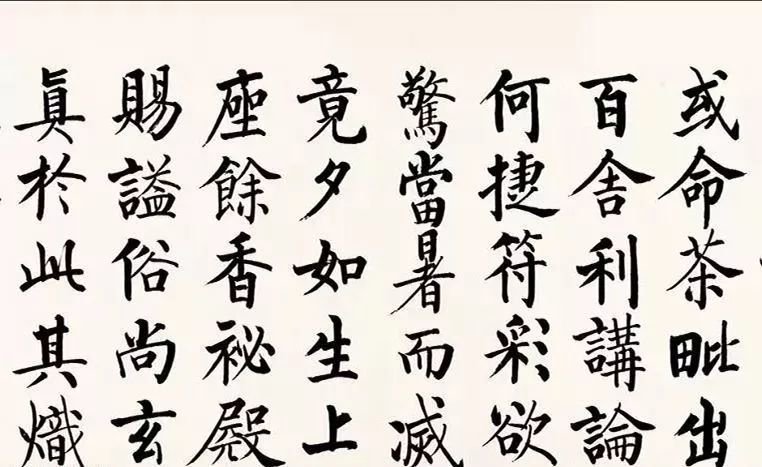 或命茶毗出
百舍利講論
何捷符彩欲
驚當暑而滅
竟夕如生上
座餘香祕殿
賜謚俗尚玄
真於此其熾